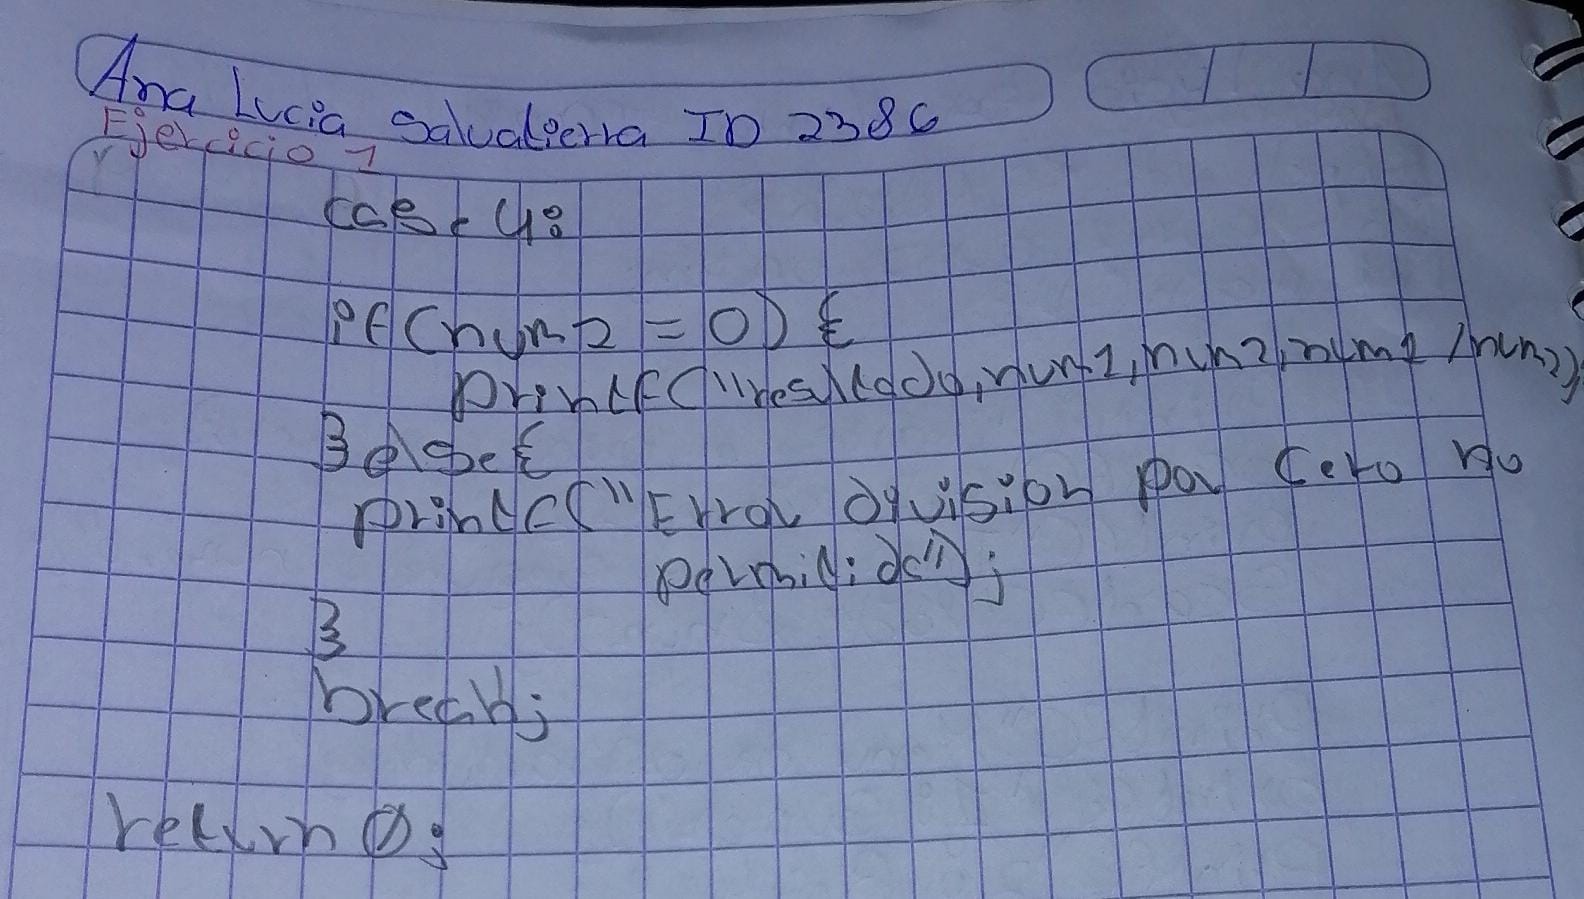 Ana Lucia Salvatierra ID 2386
Ejercicio 1
case 4:
if(num2 = 0) {
printf("resultado, num1, num2, num1 /num2);
} else {
printf("Error division por cero no
permitida");
}
break;
return 0;